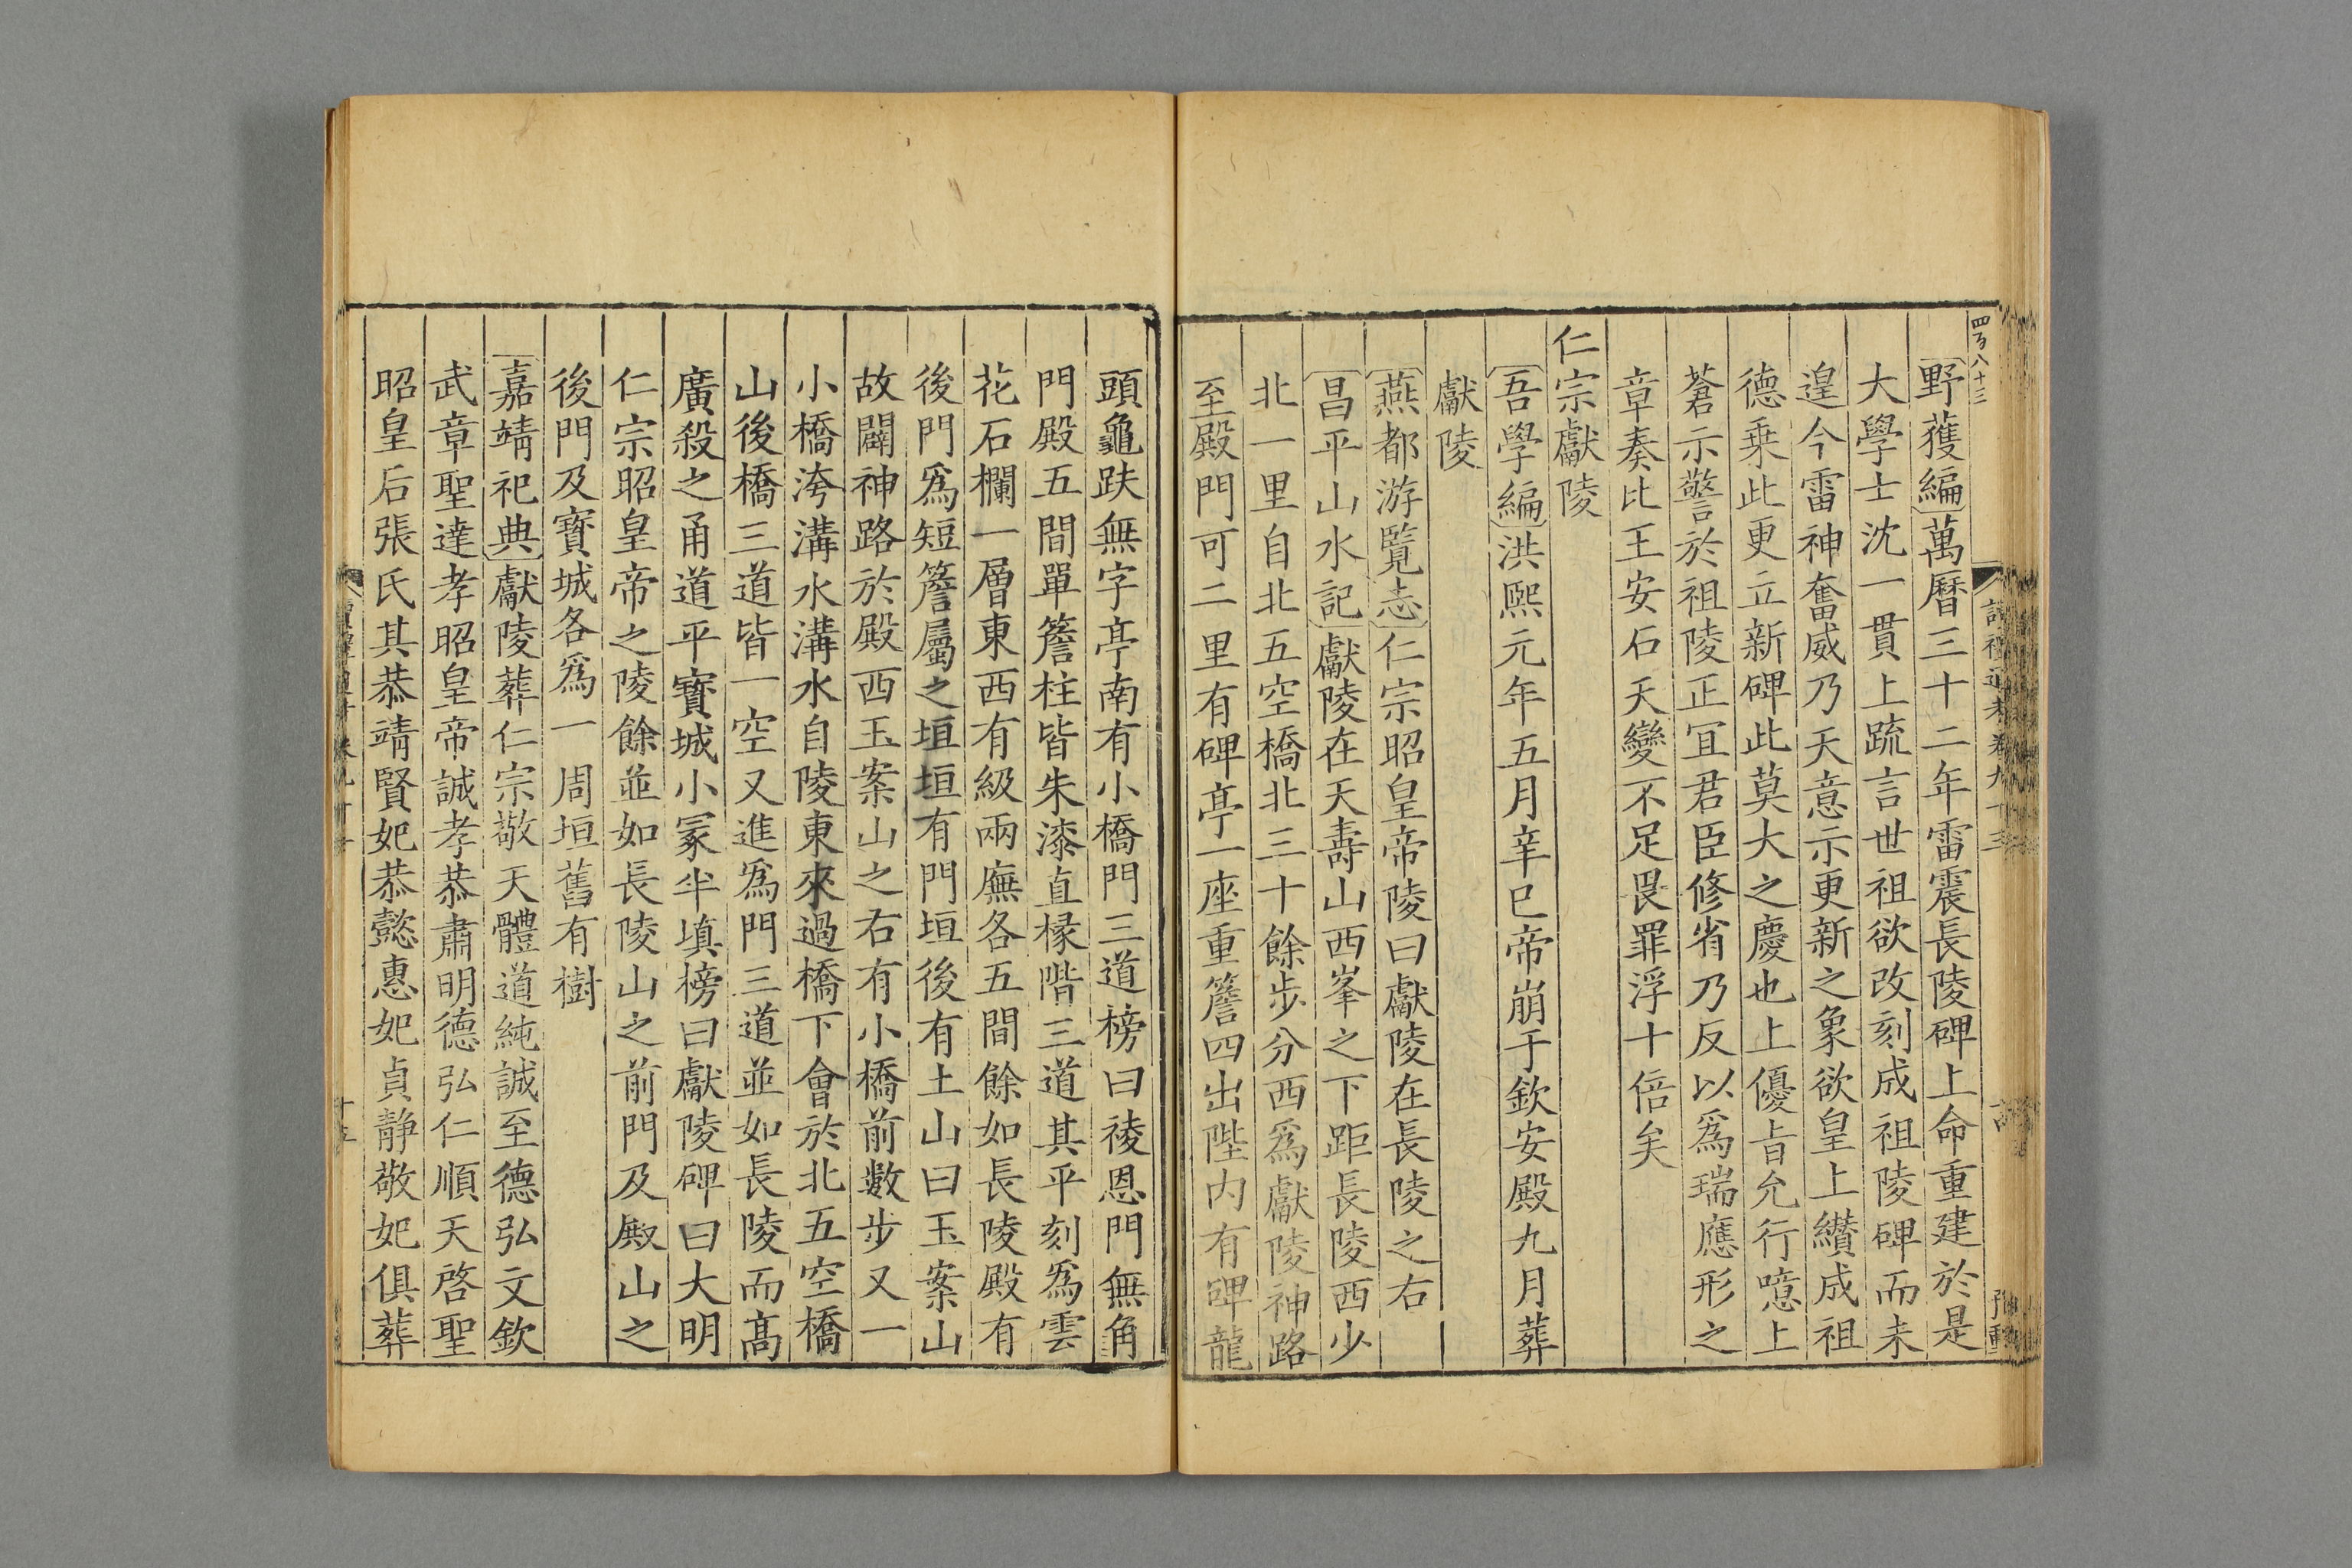 四百八十三
野獲編萬曆三十二年雷震長陵碑上命重建於是
大學士沈一貫上疏言世祖欲改刻成祖陵碑而未
遑今雷神奮威乃天意示更新之象欲皇上纘成祖
德乗此更立新碑此莫大之慶也上優旨允行噫上
蒼示警於祖陵正宜君臣修省乃反以爲瑞應形之
章奏比王安石天變不足畏罪浮十倍矣
仁宗獻陵
吾學編洪熙元年五月辛巳帝崩于欽安殿九月葬
獻陵
燕都游覽志仁宗昭皇帝陵曰獻陵在長陵之右
昌平山水記獻陵在天壽山西峯之下距長陵西少
北一里自北五空橋北三十餘步分西爲獻陵神路
至殿門可二里有碑亭一座重簷四出陛内有碑龍
頭龜趺無字亭南有小橋門三道榜曰祾恩門無角
門殿五間單簷柱皆朱漆直椽階三道其平刻爲雲
花石欄一層東西有級兩廡各五間餘如長陵殿有
後門爲短簷屬之垣垣有門垣後有土山曰玉案山
故闢神路於殿西玉案山之右有小橋前數步又一
小橋洿溝水溝水自陵東來過橋下會於北五空橋
山後橋三道皆一空又進爲門三道並如長陵而高
廣殺之甬道平寶城小冢半塡榜曰獻陵碑曰大明
仁宗昭皇帝之陵餘並如長陵山之前門及殿山之
後門及寶城各爲一周垣舊有樹
嘉靖祀典獻陵葬仁宗敬天體道純誠至德弘文欽
武章聖達孝昭皇帝誠孝恭肅明德弘仁順天啓聖
昭皇后張氏其恭靖賢妃恭懿惠妃貞静敬妃俱葬